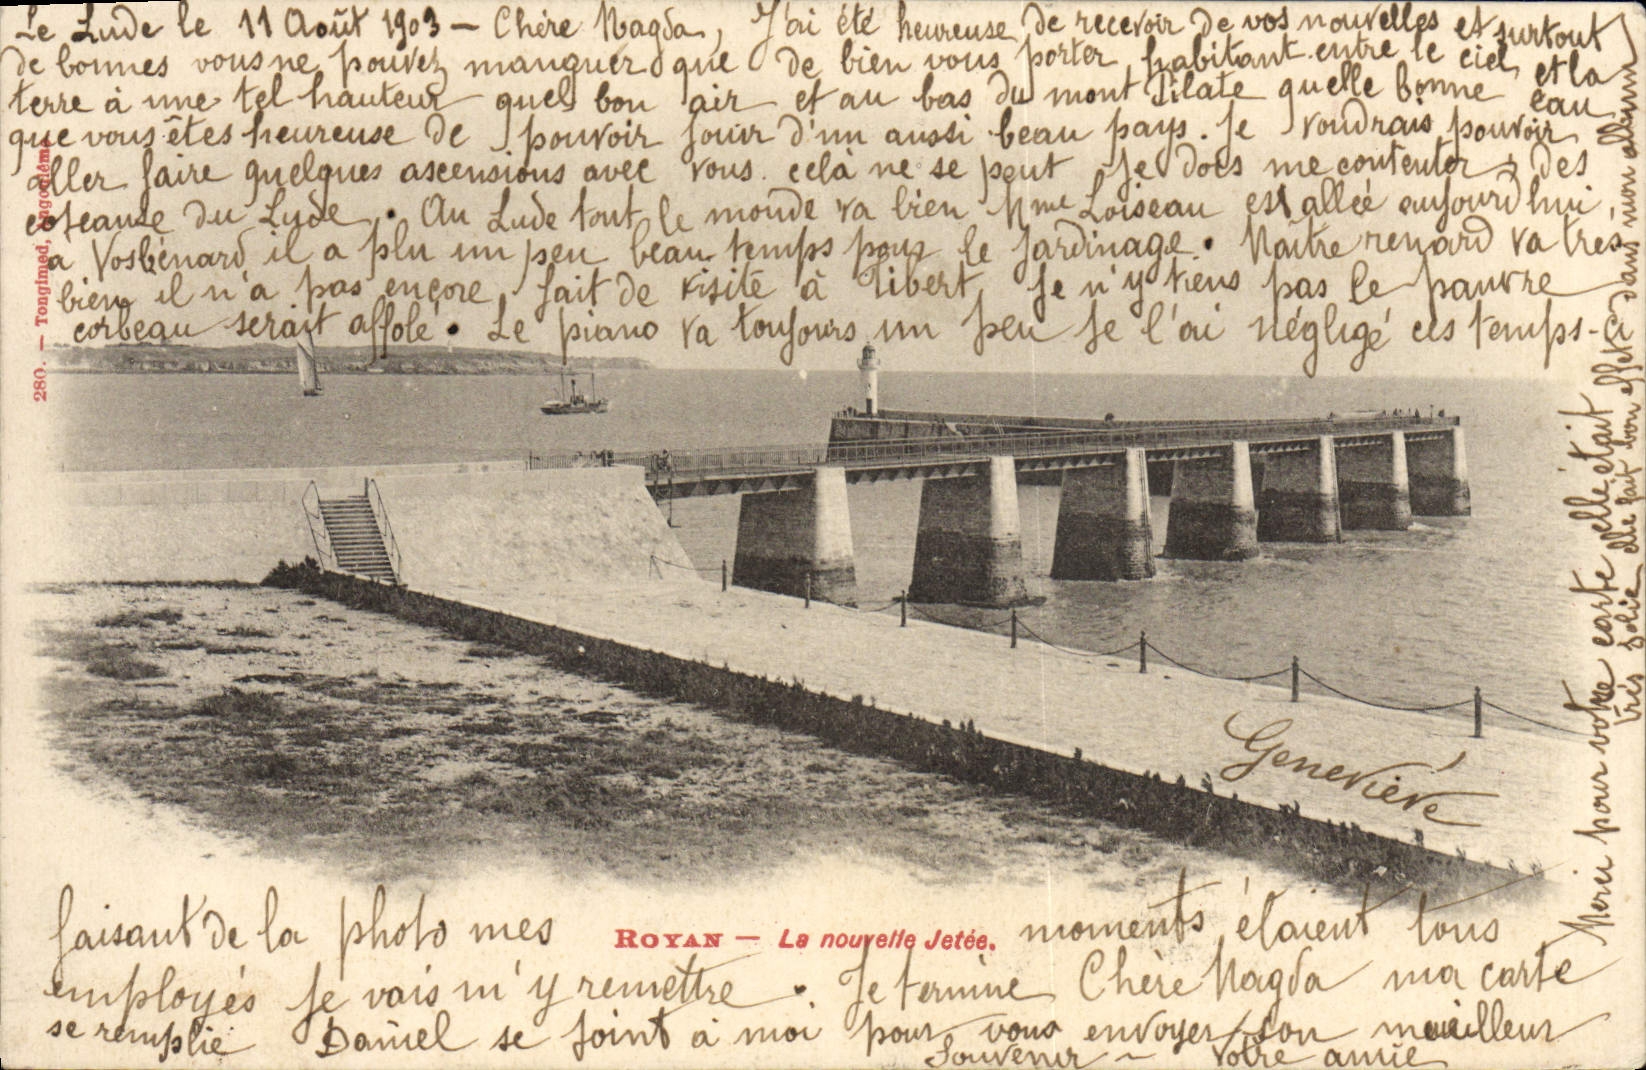 Le Lude le 11 Août 1903 — Chère Magda, J'ai été heureuse de recevoir de vos nouvelles et surtout
de bonnes vous ne pouvez manquer que de bien vous porter habitant entre le ciel et la
terre à une tel hauteur quel bon air et au bas du mont Pilate quelle bonne eau
que vous êtes heureuse de pouvoir jouir d'un aussi beau pays. Je voudrais pouvoir
aller faire quelques ascensions avec vous. celà ne se peut je dois me contenter des
coteaux du Lude. Au Lude tout le monde va bien Mme Loiseau est allée aujourd'hui
a Vosbénard il a plu un peu beau temps pour le jardinage. Maître renard va très
bien il n'a pas encore fait de visite à Tibert, Je n'y tiens pas le pauvre
corbeau serait affolé. Le piano va toujours un peu je l'ai négligé ces temps-ci
280. — Tongimed,
Geneviève
faisant de la photo mes moments étaient tous
ROYAN — La nouvelle Jetée.
employés je vais m'y remettre. Je termine Chère Magda ma carte
se remplie Daniel se joint à moi pour vous envoyer son meilleur
souvenir — Votre amie
Merci pour votre carte elle était
très jolie elle fait bon effet dans mon album